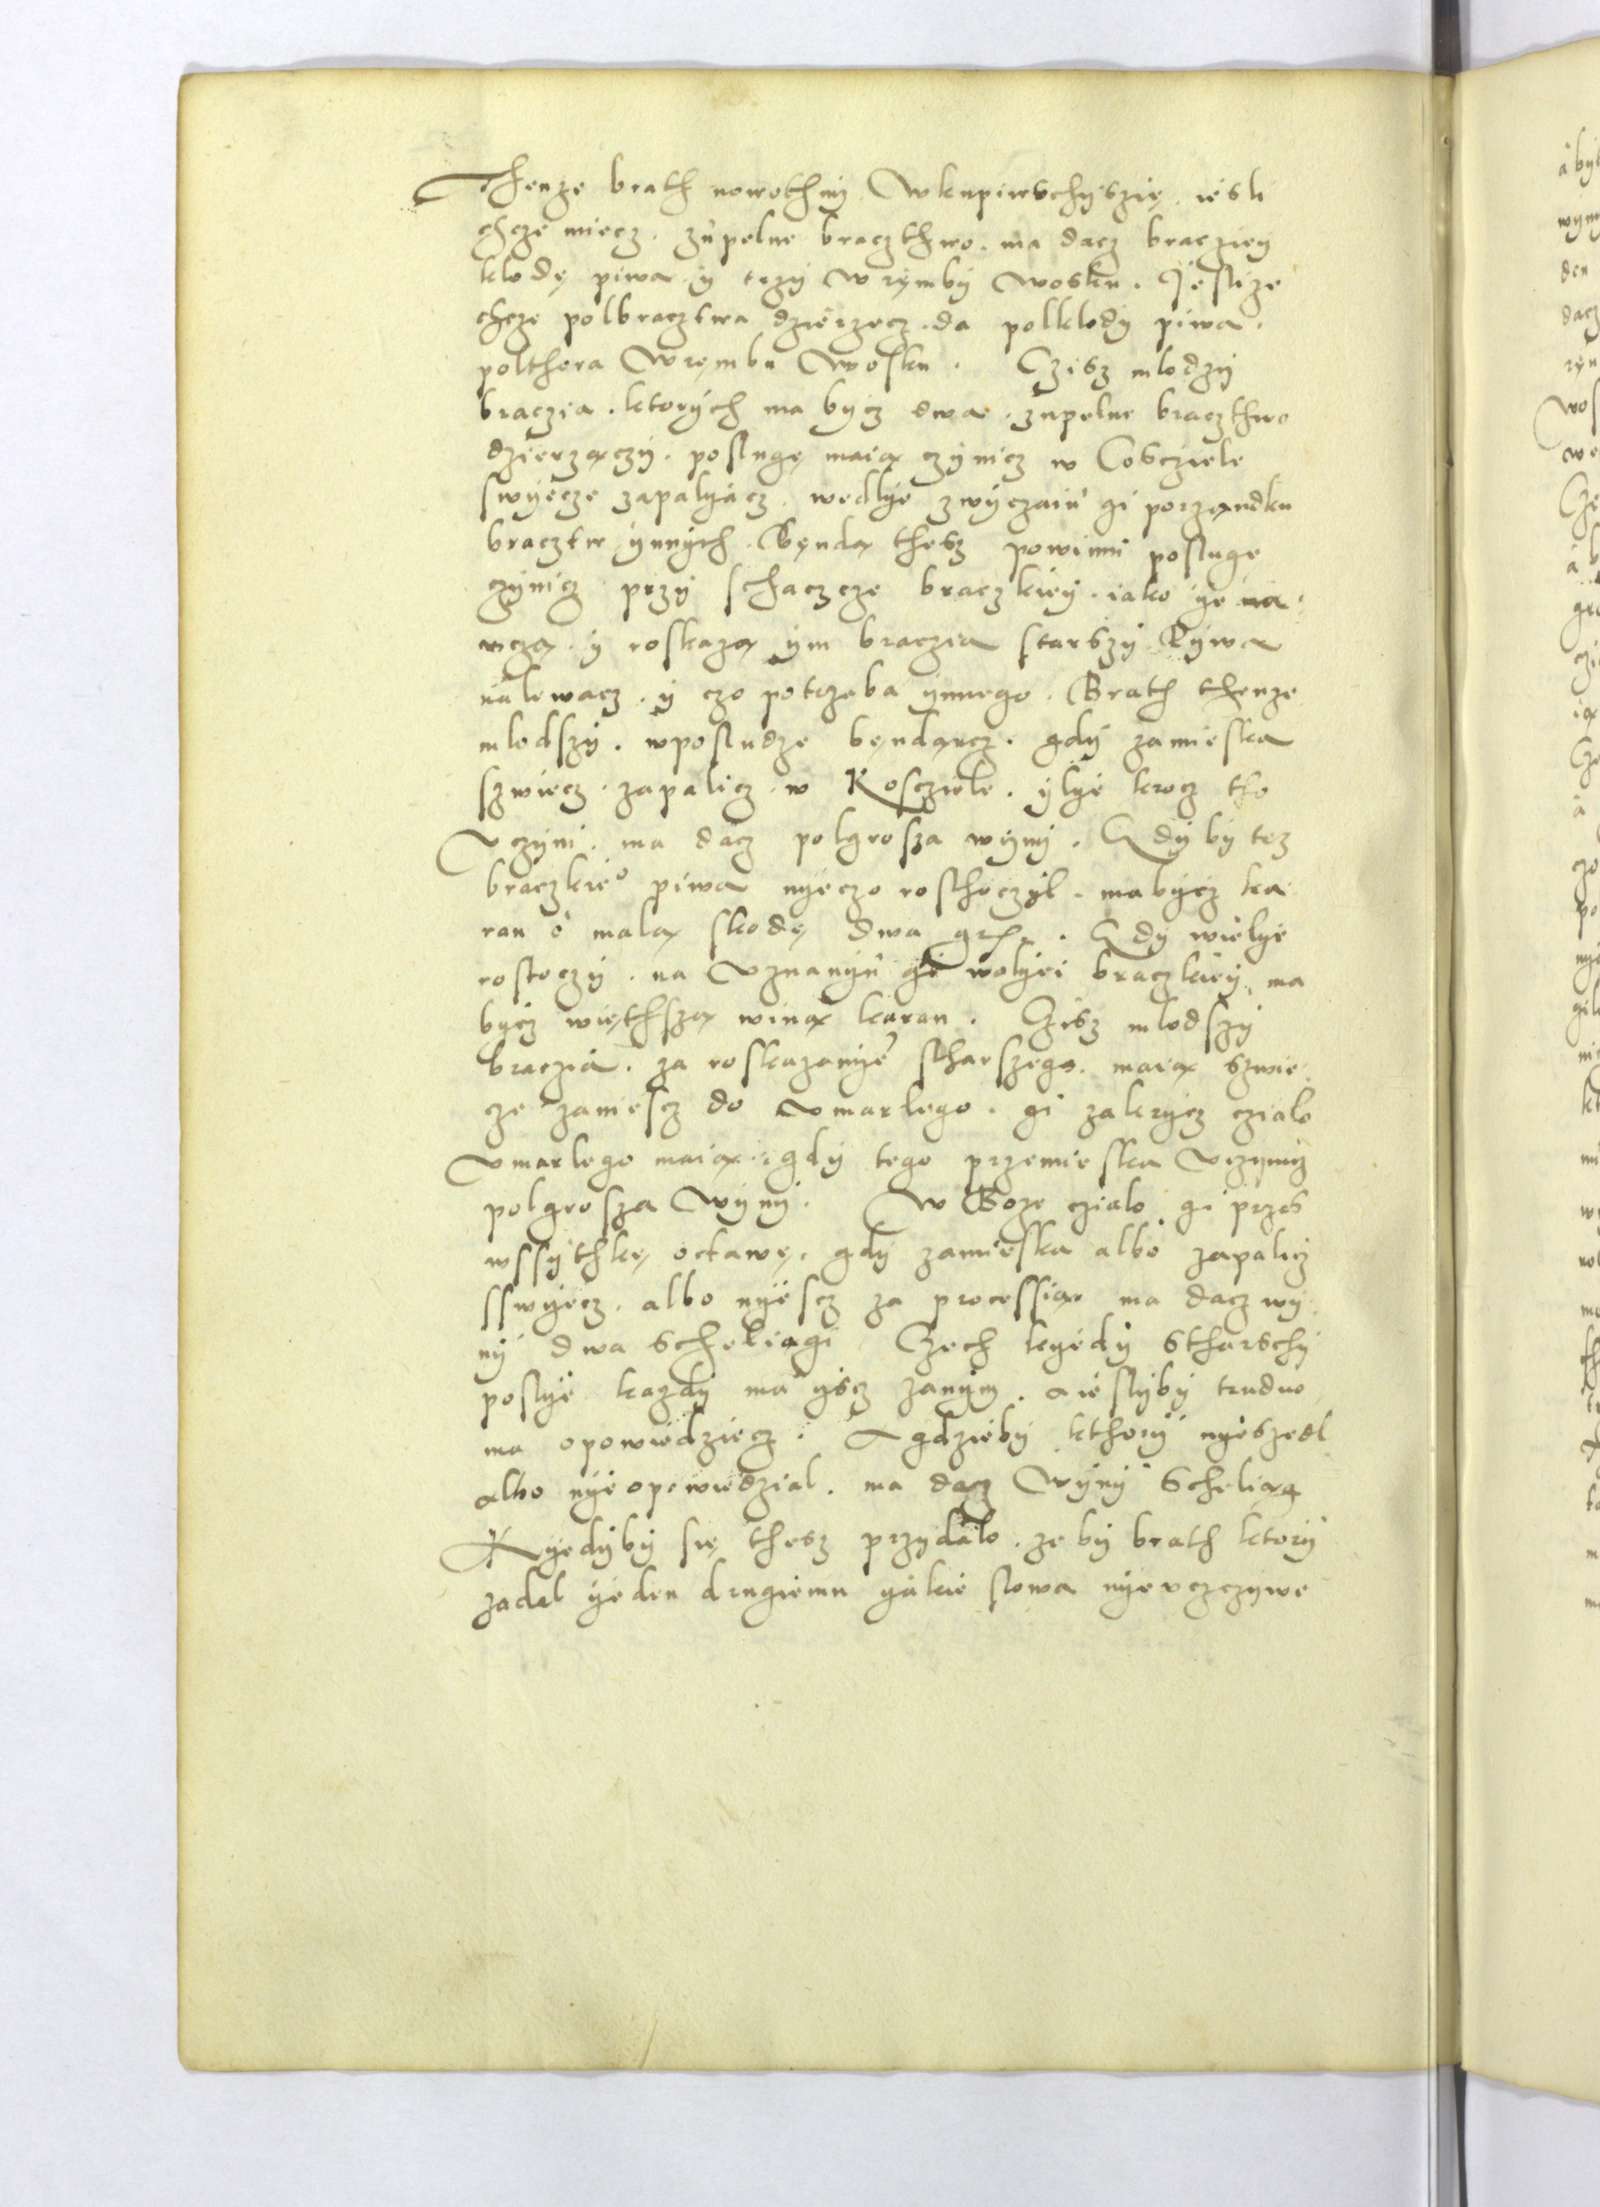 Thenze brath nowothnÿ Wkupiwschÿszię iesli
chcze miecz. zupelne braczthwo. ma dacz bracziey
klodę piwa ÿ trzÿ wrębÿ wosku. Jeslize
chcze polbracztwa dzierzecz. da polklodÿ piwa.
polthora Wrembu Wosku. Czisz mlodzÿ
braczia. ktorÿch ma bÿcz dwa. zupelne braczthwo
dzierzaczÿ. poslugę maia czÿnicz w Cosczicle
swÿecze zapalÿacz. wedlÿe zwÿczaiu gi porzandku
bracztw ÿnnÿch. Benda thesz powinni posluge
czÿnicz przÿ schaczcze braczkieÿ. iako ÿe na
ucza. ÿ roskaza ÿm braczia starszÿ Pÿwa
nalewacz. ÿ czo potrzeba ÿnnego. Brath thenze
mlodszÿ. wposludze bendancz. gdÿ zamieska
szwiecz. zapalicz. w Kosczicle. ÿlÿe krocz tho
Vczÿni. ma dacz polgrosza wÿnÿ. Gdÿ bÿ tez
braczkieo piwa nÿeczo rosthoczÿl. ma bÿcz ka
ran o mala skodę dwa grx. Gdÿ wielÿe
rostoczÿ. na Vznanÿu gÿe wolÿei braczkieÿ ma
bÿcz wiethsza wina karan. Czisz mlodszÿ
braczia. za roskazanÿe stharszego. maia szwie
cze zaniescz do Vmarlego. gi zakrÿcz czialo
Vmarlego maia. gdÿ tego przemieska Vczÿnicz
polgrosza Wÿnÿ. W Boze czialo gi przes
wssÿthkę octawę. gdÿ zamieska albo zapalicz
sswÿecz. albo nÿescz za processia ma dacz wÿ
nÿ dwa scheliagi Czech kÿedÿ stharschÿ
poslÿe kazdÿ ma ÿscz zanÿm. a ieslÿbÿ trudno
ma opowiedziecz. A gdziebÿ kthorÿ nÿeszedl
albo nÿe opowiedzial. ma dacz Wÿnÿ scheliag
Kÿedÿbÿ się thesz przÿdalo. ze bÿ brath ktorÿ
zadal ÿeden drugiemu ÿakie slowa nÿevczcziwe